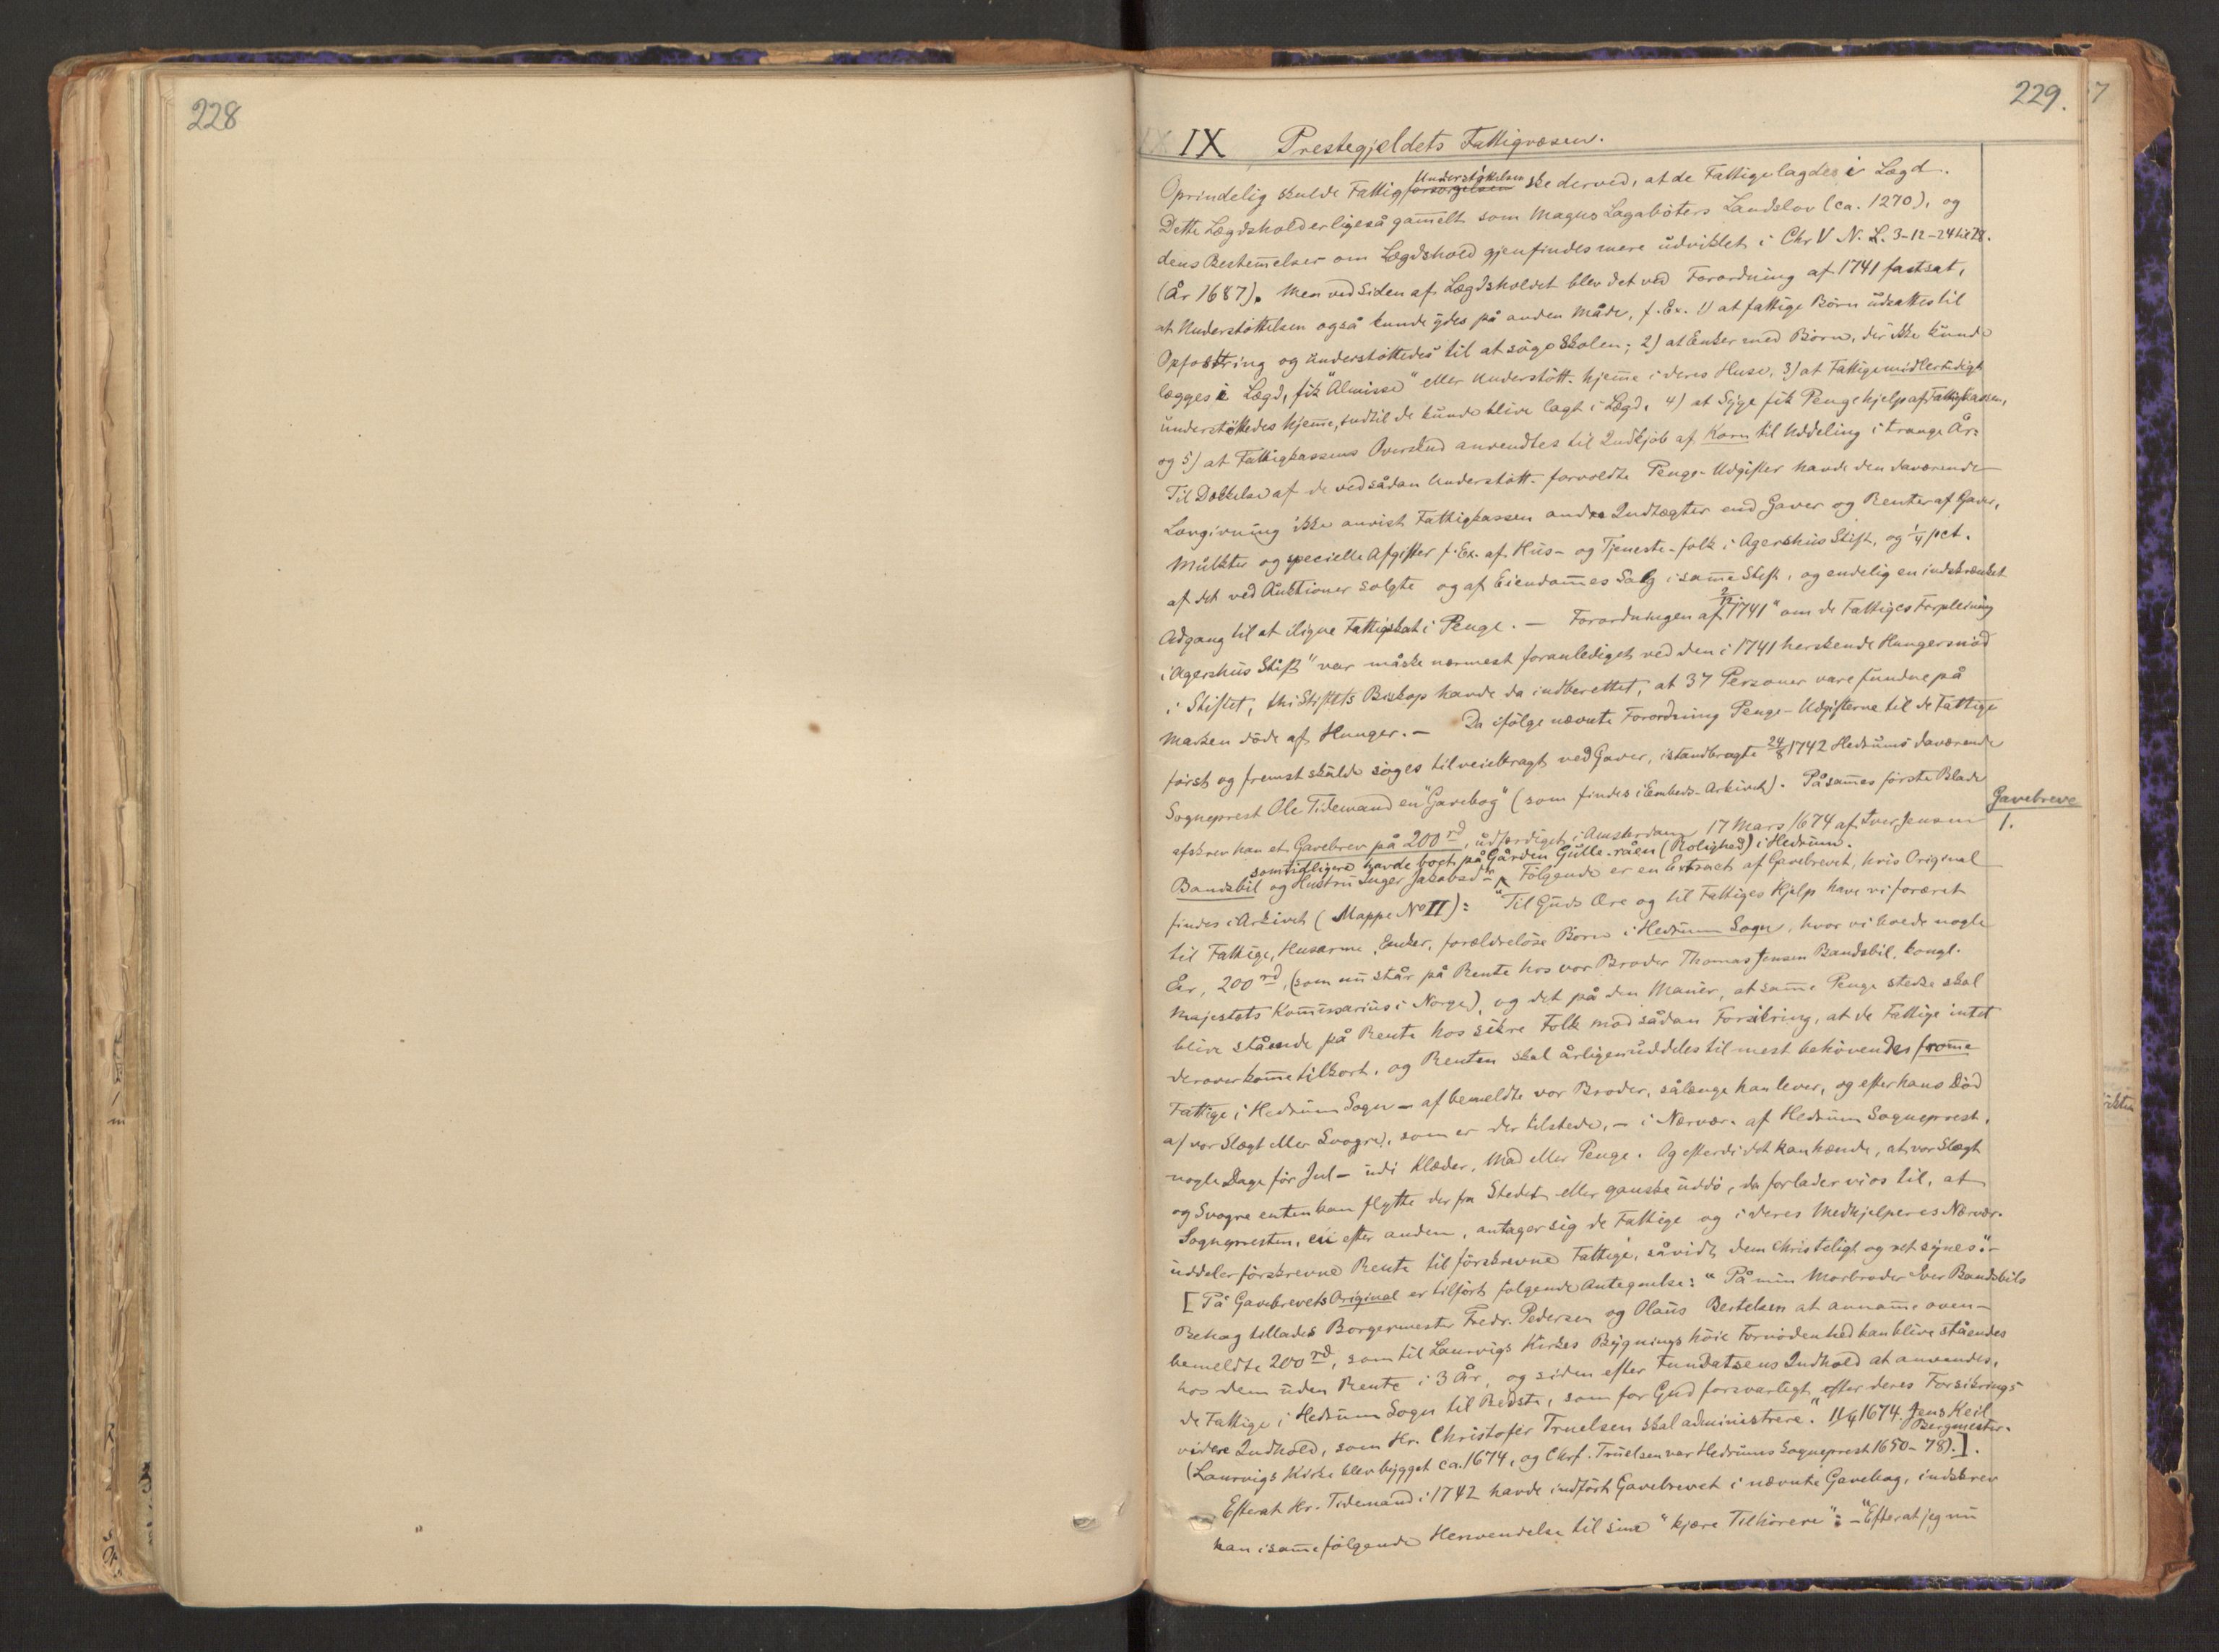 228
229.
IX Prestegjeldets Fattigvæsen.
Oprindelig skulde Fattigforsorgelsen Understöttelsen ske derved, at de Fattige lagdes i Lægd.
Dette Lægdshold er ligeså gam̄elt som Magnus Lagabøters Landslov (ca. 1270), og
dens Bestem̄elser om Lægdshold gjenfindes mere udviklet i Chr V N. L. 3-12-24 til 28.
(År 1687). Men ved Siden af Lægdsholdet blev det ved Forordning af 1741 fastsat,
at Understöttelsen også kunde ydes på anden Måde, f. Ex. 1) at fattige Börn udsattes til
Opfostring og understöttedes til at söge Skolen; 2) at Enker med Börn, der ikke kunde
lægges i Lægd, fik "Almisse" eller Understött. hjem̄e i deres Huse, 3) at Fattige midlertidigt
understöttedes hjem̄e, indtil de kunde blive lagt i Lægd, 4) at Syge fik Pengehjelp af Fattigkassen,
og 5) at Fattigkassens Overskud anvendtes til Indkjöb af Korn til Uddeling i trange År.
Til Dækkelse af de ved sådan Understött. forvoldte Penge-Udgifter havde den daværende
Lovgivning ikke anvist Fattigkassen andre Indtægter end Gaver og Renter af Gaver,
Mulkter og specielle Afgifter f. Ex. af Hus- og Tjeneste-folk i Agershus Stift, og ¼ pct.
af det ved Auktioner solgte og af Eiendom̄es Salg i sam̄e Stift, og endelig en indskrænket
Adgang til at iligne Fattigskat i Penge. — Forordningen af 2/12 1741 "om de Fattiges Forpleining
i Agershus Stift" var måske nærmest foranlediget ved den i 1741 herskende Hungersnöd
i Stiftet, thi Stiftets Biskop havde da indberettet, at 37 Personer vare fundne på
Marken döde af Hunger. — Da ifölge nævnte Forordning Penge-Udgifterne til de Fattige
först og fremst skulde söges tilveiebragt ved Gaver, istandbragte 24/8 1742 Hedrums daværende
Sogneprest Ole Tidemand en "Gavebog" (som findes i Embeds-Arkivet). På sam̄es förste Blade
Gavebreve
afskrev han et Gavebrev på 200 rd, udfærdiget i Amsterdam 17 Mars 1674 af Iver Jensen
1.
som tidligere havde boet på Gården Gulle-råen (Rolighed) i Hedrum.
Bandsbil og Hustru Inger Jakobsd. Fölgende er en Extract af Gavebrevet, hvis Original
findes i Arkivet (Mappe No II): "Til Guds Ære og til Fattiges Hjelp have vi foræret
til Fattige, Husarme, Enker, forældrelöse Börn i Hedrum Sogn, hvor vi boede nogle
År, 200 rd, (som nu står på Rente hos vor Broder Thomas Jensen Bandsbil, kongl.
Majestæts Kom̄issarius i Norge), og det på den Maner, at sam̄e Penge stedse skal
blive stående på Rente hos sikre Folk mod sådan Forsikring, at de Fattige intet
derover kom̄e tilkort, og Renten skal årligen uddeles til mest behövendes from̄e
Fattige i Hedrum Sogn — af bemeldte vor Broder, sålænge han lever, og efter hans Död
af vor Slægt eller Svogre, som er der tilstede, — i Nærvær. af Hedrum Sogneprest,
nogle Dage för Jul — udi Klæder, Mad eller Penge. Og efterdi det kan hænde, at vor Slægt
og Svogre enten kan flytte der fra Stedet eller ganske uddö, da forlader vi os til, at
Sognepresten, en efter anden, antager sig de Fattige og i deres Medhjelperes Nærvær.
uddeler förskrevne Rente til förskrevne Fattige, såvidt dem christeligt og ret synes".
[På Gavebrevets Original er tilfört fölgende Antegnelse: "På min Morbroder Iver Bandsbils
Behag tillades Borgermester Fredr. Pedersen og Olaus Bertelsen at annam̄e oven-
bemeldte 200 rd, som til Laurvigs Kirkes Bygnings höie Fornödenhed kan blive ståendes
hos dem uden Rente i 3 År, og siden efter Fundatsens Indhold at anvendes,
de Fattige i Hedrum Sogn til Bedste, som for Gud forsvarligt efter deres Forsikrings
videre Indhold, som Hr. Christofer Truelsen skal administrere." 11/4 1674. Jens Keil Bergmester.
(Laurvigs Kirke blev bygget ca. 1674, og Chrf. Truelsen var Hedrums Sogneprest 1650-78).].
Efterat Hr. Tidemand i 1742 havde indfört Gavebrevet i nævnte Gavebog, indskrev
han i sam̄e fölgende Henvendelse til sine "kjære Tilhörere": — "Efterat jeg nu